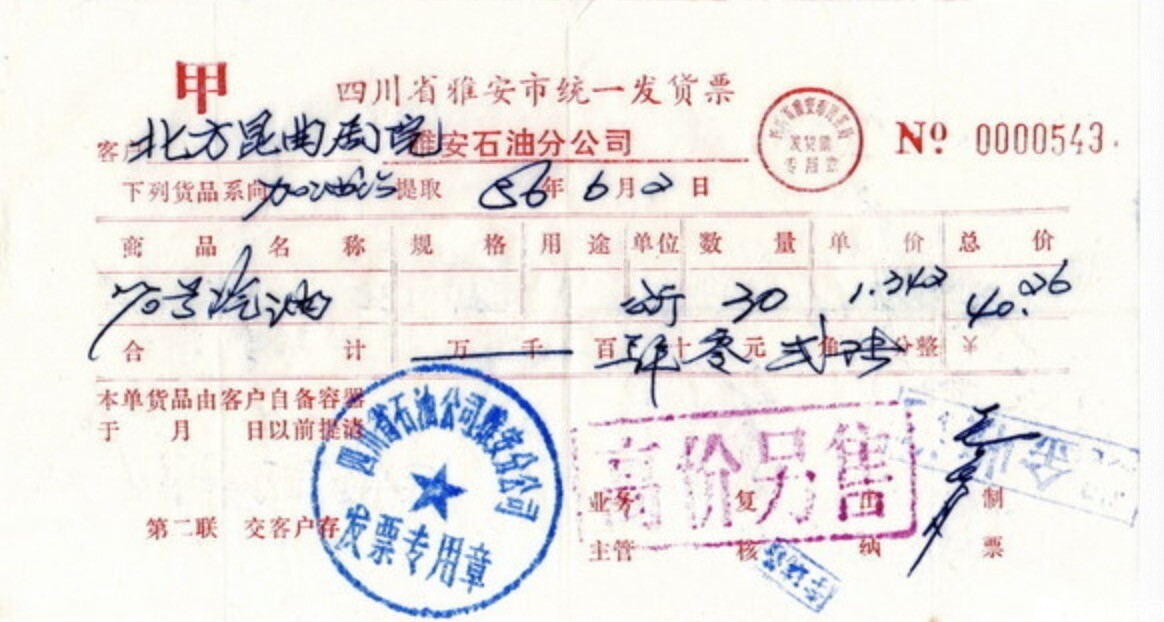 甲
四川省雅安市统一发货票
发货票
专用章
No 0000543
客户 北方昆曲剧院 雅安石油分公司
下列货品系向 加油站 提取 86年6月2日
商品名称 规格 用途 单位 数量 单价 总价
70号汽油 30 1.342 40.26
合计 万 千 百 肆 十 零 元 贰 角 陆 分整
本单货品由客户自备容器
于 月 日以前提清
四川省石油公司雅安分公司
发票专用章
高价另售
第二联 交客户存
业务 复 出 制
主管 核 纳 票